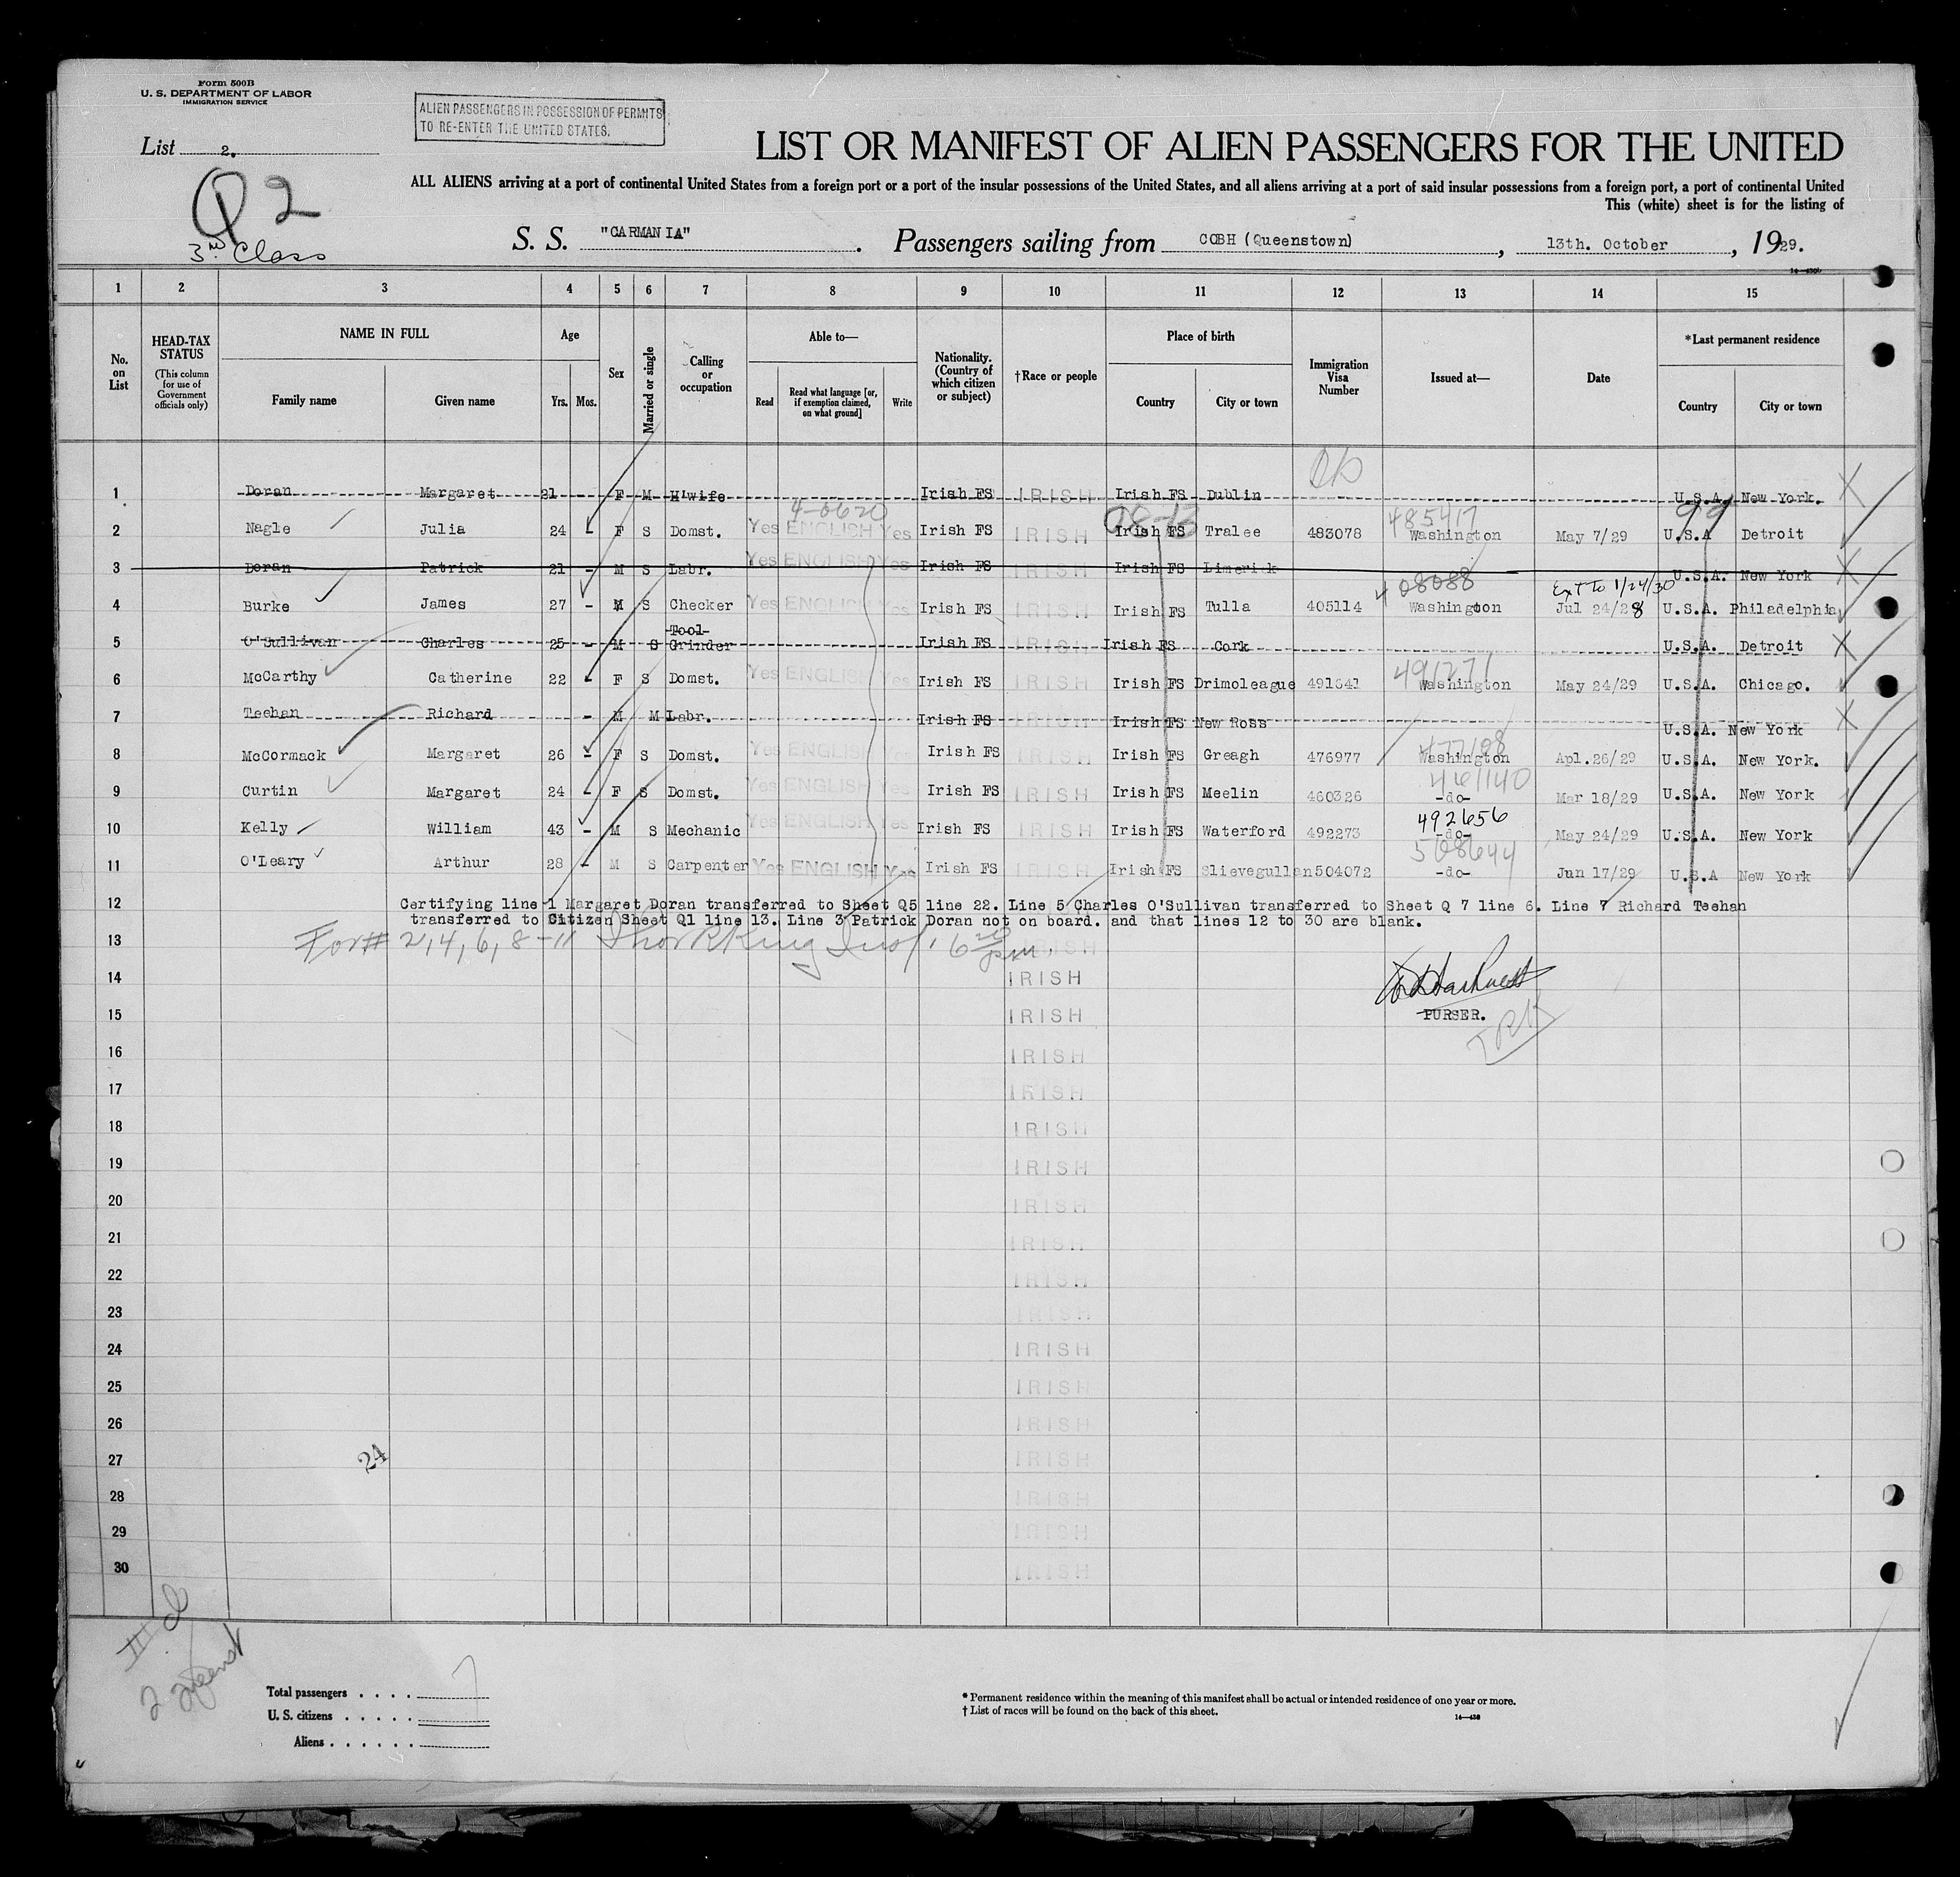 Form 500B
U. S. DEPARTMENT OF LABOR
IMMIGRATION SERVICE
ALIEN PASSENGERS IN POSSESSION OF PERMITS
TO RE-ENTER THE UNITED STATES.
List 2.
Q 2
3rd Class
LIST OR MANIFEST OF ALIEN PASSENGERS FOR THE UNITED
ALL ALIENS arriving at a port of continental United States from a foreign port or a port of the insular possessions of the United States, and all aliens arriving at a port of said insular possessions from a foreign port, a port of continental United
This (white) sheet is for the listing of
S. S. "CARMANIA". Passengers sailing from COBH (Queenstown), 13th. October, 1929.
1 2 3 4 5 6 7 8 9 10 11 12 13 14 15
No. on List
HEAD-TAX STATUS
(This column for use of Government officials only)
NAME IN FULL
Family name Given name
Age
Yrs. Mos.
Sex
Married or single
Calling or occupation
Able to—
Read
Read what language [or, if exemption claimed, on what ground]
Write
Nationality. (Country of which citizen or subject)
†Race or people
Place of birth
Country City or town
Immigration Visa Number
Issued at—
Date
*Last permanent residence
Country City or town
1 Doran Margaret 21 F M H'wife Irish FS IRISH Irish FS Dublin U.S.A. New York. X
4-0620 485417 99
2 Nagle Julia 24 - F S Domst. Yes ENGLISH Yes Irish FS IRISH Irish FS Tralee 483078 Washington May 7/29 U.S.A Detroit
3 Doran Patrick 21 - M S Labr. Yes ENGLISH Yes Irish FS IRISH Irish FS Limerick U.S.A. New York X
408088 Ext to 1/24/30
4 Burke James 27 - M S Checker Yes ENGLISH Yes Irish FS IRISH Irish FS Tulla 405114 Washington Jul 24/28 U.S.A. Philadelphia
5 O'Sullivan Charles 25 - M S Tool Grinder Irish FS IRISH Irish FS Cork U.S.A. Detroit X
491271
6 McCarthy Catherine 22 - F S Domst. Yes ENGLISH Yes Irish FS IRISH Irish FS Drimoleague 491641 Washington May 24/29 U.S.A. Chicago.
7 Teehan Richard - M M Labr. Irish FS IRISH Irish FS New Ross U.S.A. New York X
477198
8 McCormack Margaret 26 - F S Domst. Yes ENGLISH Yes Irish FS IRISH Irish FS Greagh 476977 Washington Apl.26/29 U.S.A. New York.
461140
9 Curtin Margaret 24 - F S Domst. Yes ENGLISH Yes Irish FS IRISH Irish FS Meelin 460326 -do- Mar 18/29 U.S.A. New York
492656
10 Kelly William 43 - M S Mechanic Yes ENGLISH Yes Irish FS IRISH Irish FS Waterford 492273 -do- May 24/29 U.S.A. New York
508644
11 O'Leary Arthur 28 - M S Carpenter Yes ENGLISH Yes Irish FS IRISH Irish FS Slievegullen 504072 -do- Jun 17/29 U.S.A New York
12 Certifying line 1 Margaret Doran transferred to Sheet Q5 line 22. Line 5 Charles O'Sullivan transferred to Sheet Q 7 line 6. Line 7 Richard Teehan
transferred to Citizen Sheet Q1 line 13. Line 3 Patrick Doran not on board. and that lines 12 to 30 are blank.
13 For # 2, 4, 6, 8-11 IRISH
14 IRISH
15 IRISH PURSER.
16 IRISH
17 IRISH
18 IRISH
19 IRISH
20 IRISH
21 IRISH
22 IRISH
23 IRISH
24 IRISH
25 IRISH
26 IRISH
27 24 IRISH
28 IRISH
29 IRISH
30 IRISH
Total passengers . . . . 7
U. S. citizens . . . . .
Aliens . . . . . .
* Permanent residence within the meaning of this manifest shall be actual or intended residence of one year or more.
† List of races will be found on the back of this sheet.